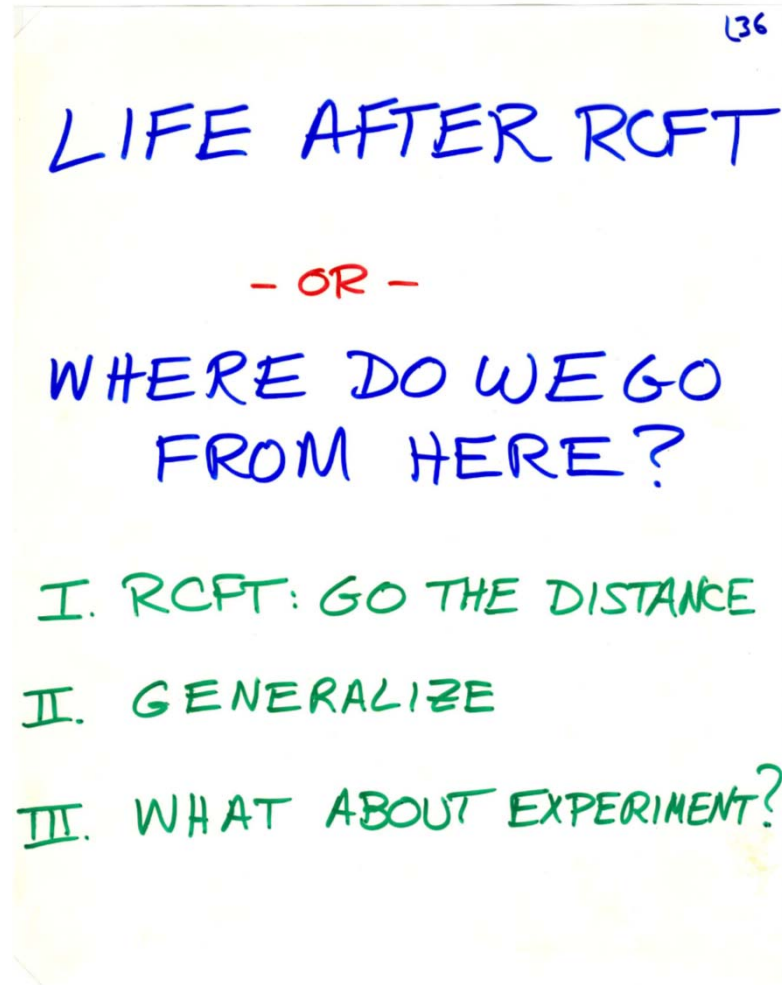 L36
LIFE AFTER RCFT
- OR -
WHERE DO WE GO
FROM HERE?
I. RCFT: GO THE DISTANCE
II. GENERALIZE
III. WHAT ABOUT EXPERIMENT?